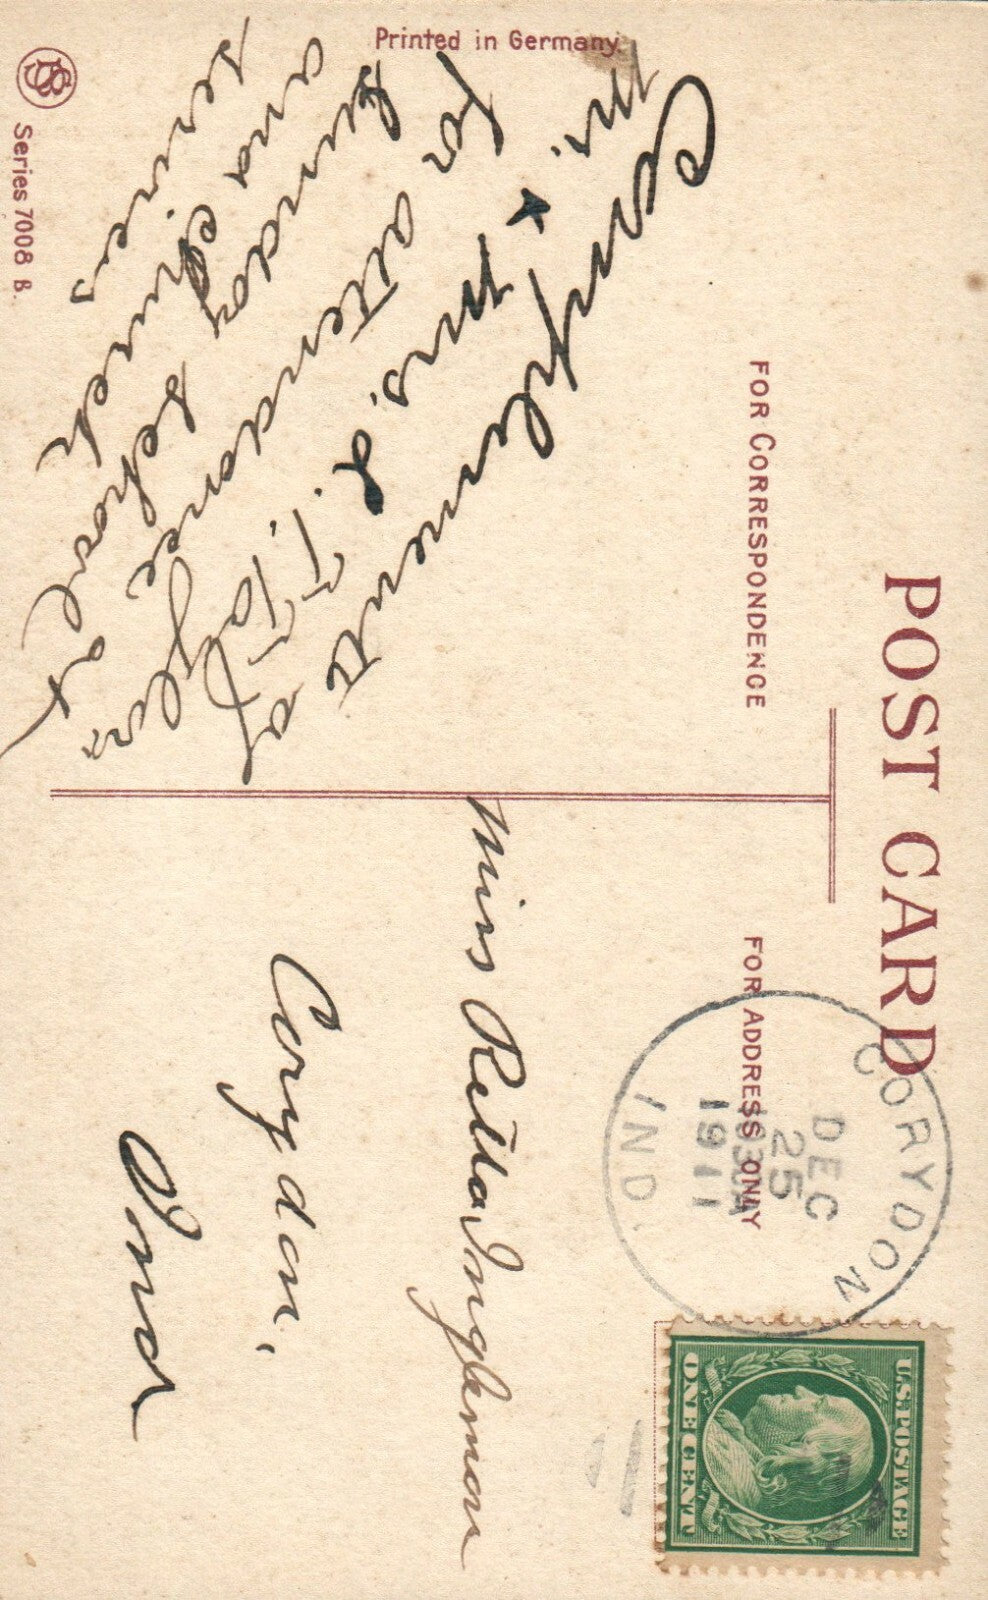 POST CARD
FOR CORRESPONDENCE
FOR ADDRESS ONLY
CORYDON
DEC
25
930A
1911
IND.
U.S. POSTAGE
ONE CENT
Compliments of
Mr. & Mrs. L. T. Taylor,
for attendance
Sunday School at
and Church
services
Miss Retta Ingleman
Corydon,
Ind
Printed in Germany.
SB
Series 7008 B.